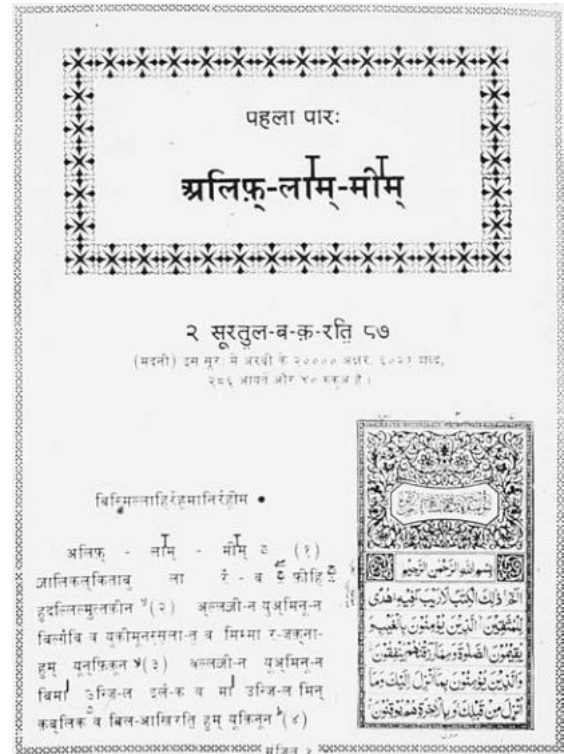 पहला पारः
अलिफ़्-लाम्-मीम्
२ सूरतुल-ब-क़-रति ८७
(मदनी) इस सूरः में अरबी के २०००० अक्षर, ६०२१ शब्द,
२८६ आयतें और ४० रुकूअ है।
बिस्मिल्लाहिर्रह्मानिर्रहीम ●
अलिफ़् - लाम् - मीम् (१)
जालिकल्किताबु ला रै - ब फीहि
हुदल्लिल्मुत्तकीन (२) अल्लजी-न युअ्मिनू-न
बिल्गैबि व युकीमूनस्सला-त व मिम्मा र-जक्ना-
हुम् युन्फिकून (३) वल्लजी-न युअ्मिनू-न
बिमा उन्जि-ल इलै-क व मा उन्जि-ल मिन्
कब्लिक व बिल-आखिरति हुम् यूकिनून (४)
بسم الله الرحمن الرحيم
الم ذلك الكتب لا ريب فيه هدى
للمتقين الذين يؤمنون بالغيب و
يقيمون الصلوة ومما رزقنهم ينفقون
والذين يؤمنون بما انزل اليك وما
انزل من قبلك وبالاخرة هم يوقنون
मंजिल १